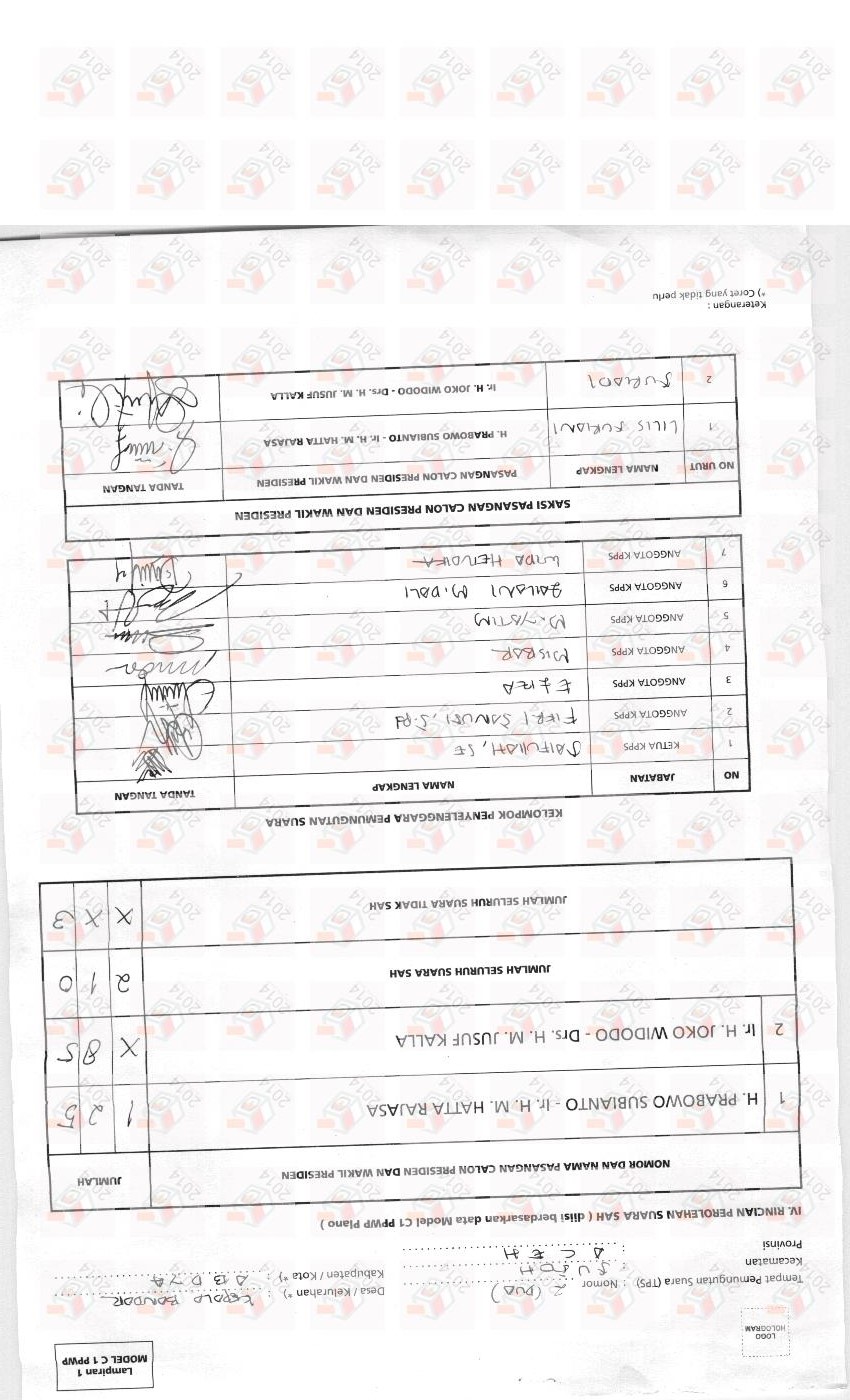 Lampiran 1
MODEL C 1 PPWP
LOGO
HOLOGRAM
Tempat Pemungutan Suara (TPS) : Nomor 2 (DUA) Desa / Kelurahan *) : KEPALA BANDAR
Kecamatan : SUSOH Kabupaten / Kota *) : ABDYA
Provinsi : ACEH
IV. RINCIAN PEROLEHAN SUARA SAH ( diisi berdasarkan data Model C1 PPWP Plano )
NOMOR DAN NAMA PASANGAN CALON PRESIDEN DAN WAKIL PRESIDEN JUMLAH
1 H. PRABOWO SUBIANTO - Ir. H. M. HATTA RAJASA 1 2 5
2 Ir. H. JOKO WIDODO - Drs. H. M. JUSUF KALLA X 8 5
JUMLAH SELURUH SUARA SAH 2 1 0
JUMLAH SELURUH SUARA TIDAK SAH X X 3
KELOMPOK PENYELENGGARA PEMUNGUTAN SUARA
NO JABATAN NAMA LENGKAP TANDA TANGAN
1 KETUA KPPS SAIFULLAH, SE
2 ANGGOTA KPPS FIERI SANUSI, S.Pd
3 ANGGOTA KPPS
4 ANGGOTA KPPS MISBAR
5 ANGGOTA KPPS M. YATIM
6 ANGGOTA KPPS ZAILANI M. DALI
7 ANGGOTA KPPS
SAKSI PASANGAN CALON PRESIDEN DAN WAKIL PRESIDEN
NO URUT NAMA LENGKAP PASANGAN CALON PRESIDEN DAN WAKIL PRESIDEN TANDA TANGAN
1 LILIS SURIANI H. PRABOWO SUBIANTO - Ir. H. M. HATTA RAJASA
2 SURIADI Ir. H. JOKO WIDODO - Drs. H. M. JUSUF KALLA
Keterangan :
*) Coret yang tidak perlu
2014